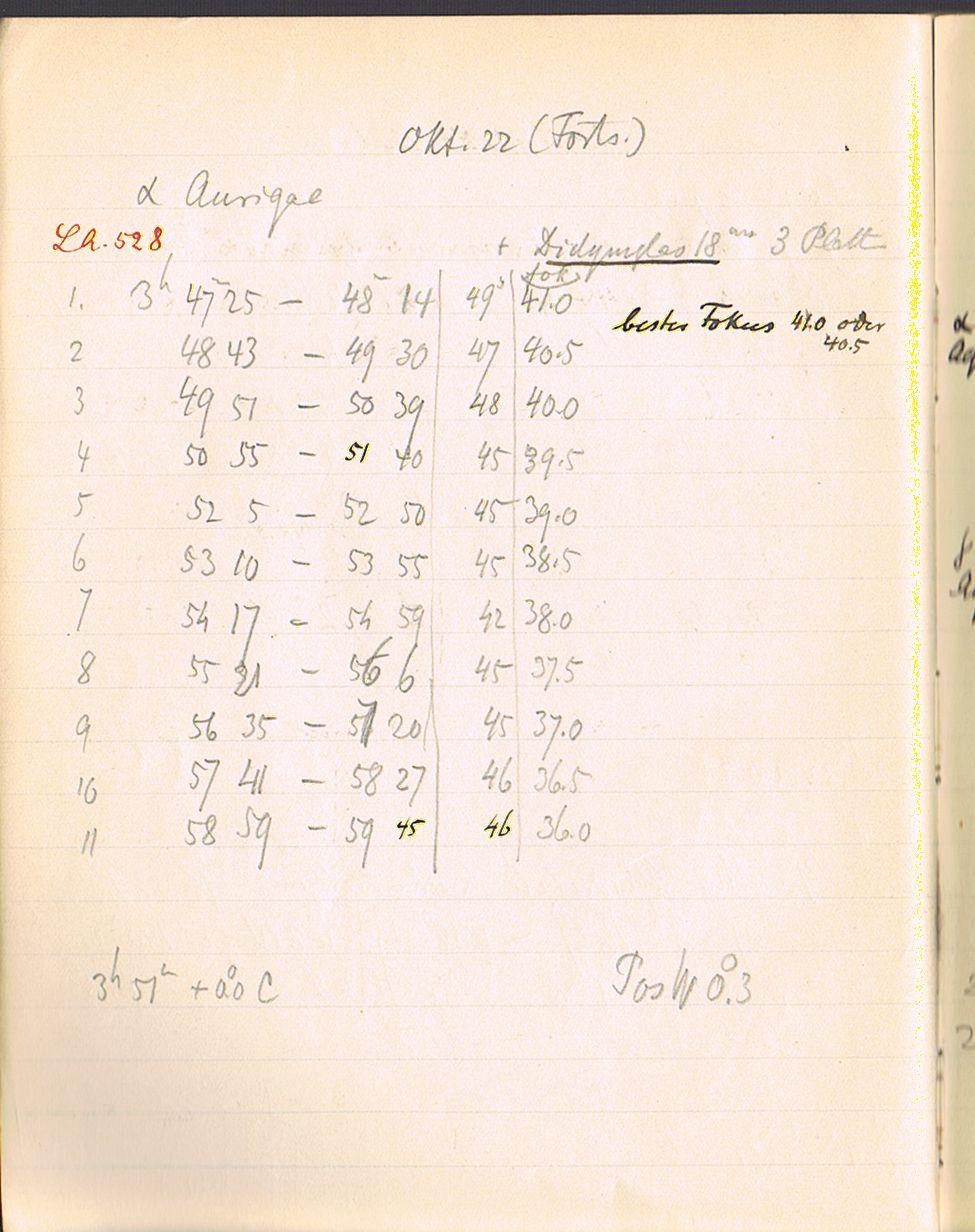 Okt. 22 (Forts.)
α Aurigae
Lh. 528
+ Didymglas 18 mm 3 Platt
Fok.
1. 3h 47m 25 – 48m 14 49s 41.0
bester Fokus 41.0 oder
40.5
2 48 43 – 49 30 47 40.5
3 49 51 – 50 39 48 40.0
4 50 55 – 51 40 45 39.5
5 52 5 – 52 50 45 39.0
6 53 10 – 53 55 45 38.5
7 54 17 – 54 59 42 38.0
8 55 21 – 56 6 45 37.5
9 56 35 – 57 20 45 37.0
10 57 41 – 58 27 46 36.5
11 58 59 – 59 45 46 36.0
3h 51m + 0°.0 C
Pos W 0°.3